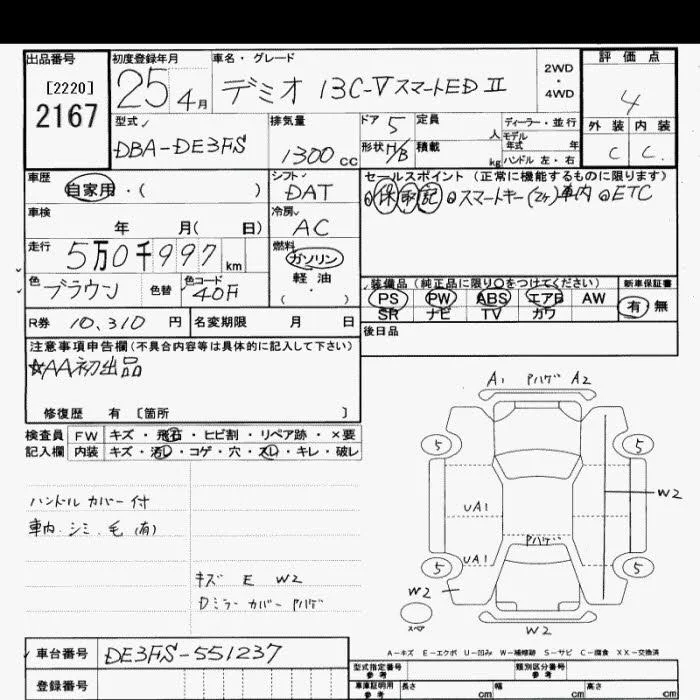 出品番号
[2220]
2167
初度登録年月
25 4月
車名・グレード
デミオ 13C-V スマートED II
2WD
・
4WD
評価点
4
外装 内装
C C
型式
DBA-DE3FS
排気量
1300 cc
ドア 5
形状 H/B
定員 人
積載 kg
ディーラー・並行
モデル
年式 年
ハンドル 左・右
車歴
自家用・( )
シフト
DAT
セールスポイント(正常に機能するものに限ります)
保 取 記 スマートキー(2ヶ)車内 ETC
車検
年 月( 日)
冷房
AC
走行
5万0千997km
燃料
ガソリン
軽油
( )
色
ブラウン
色替
色コード
40F
装備品(純正品に限り○をつけてください)
PS PW ABS エアB AW
SR ナビ TV カワ
新車保証書
有・無
R券 10,310 円
名変期限 月 日
後日品
注意事項申告欄(不具合内容等は具体的に記入して下さい)
☆AA初出品
修復歴 有 [箇所 ]
検査員
記入欄
FW キズ・飛石・ヒビ割・リペア跡・×要
内装 キズ・汚レ・コゲ・穴・スレ・キレ・破レ
ハンドル カバー付
車内 シミ、毛(有)
キズ E W2
Dミラーカバー Pハゲ
A1 Pハゲ A2
5 5
W2
UA1
Pハゲ
UA1
5 5
W2
スペア
W2
A-キズ E-エクボ U-凹み W-補修跡 S-サビ C-腐食 XX-交換済
車台番号 DE3FS-551237
登録番号
型式指定番号
参考
類別区分番号
参考
車庫証明用
参考
長さ cm 幅 cm 高さ cm